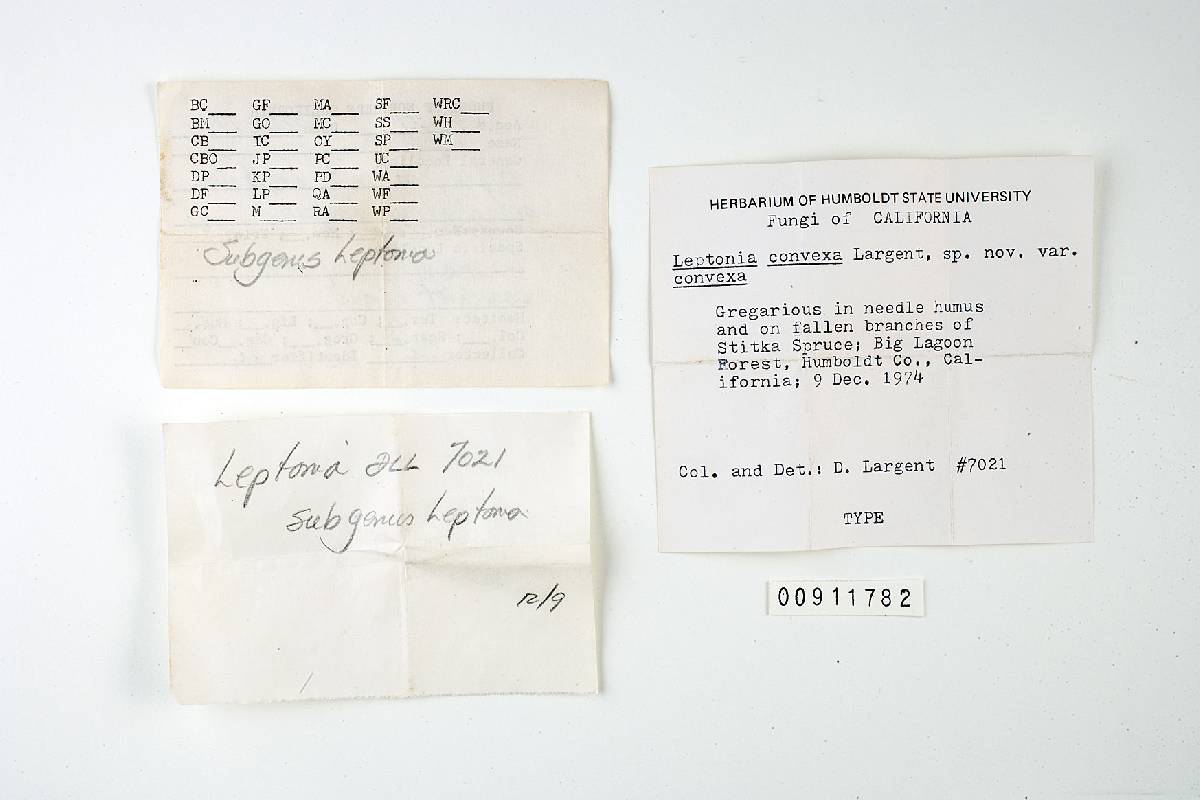 BC___ GF___ MA___ SF___ WRC___
BM___ GO___ MC___ SS___ WH___
CB___ IC___ OY___ SP___ WM___
CBO__ JP___ PC___ UC___
DP___ KP___ PD___ WA___
DF___ LP___ QA___ WF___
GC___ M____ RA___ WP___
Subgenus Leptonia
Leptonia DLL 7021
Subgenus Leptonia
12/9
HERBARIUM OF HUMBOLDT STATE UNIVERSITY
Fungi of CALIFORNIA
Leptonia convexa Largent, sp. nov. var.
convexa
Gregarious in needle humus
and on fallen branches of
Stitka Spruce; Big Lagoon
Forest, Humboldt Co., Cal-
ifornia; 9 Dec. 1974
Col. and Det.: D. Largent #7021
TYPE
00911782